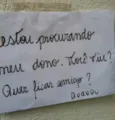 estou procurando
meu dono. Você viu?
Quer ficar comigo?